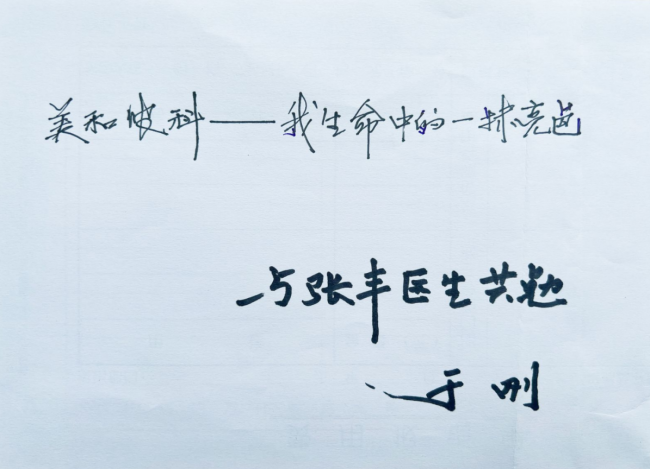 美和皮科——我生命中的一抹亮色
与张丰医生共勉
——于刚